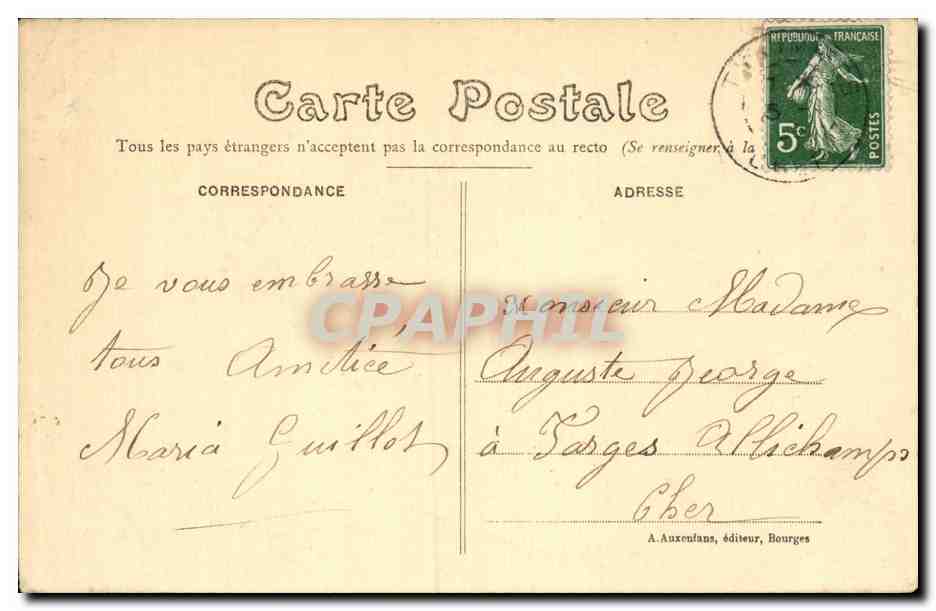 RÉPUBLIQUE FRANÇAISE
5c
POSTES
Carte Postale
Tous les pays étrangers n'acceptent pas la correspondance au recto (Se renseigner à la
CORRESPONDANCE
ADRESSE
Je vous embrasse
tous Amitiée
Maria Guillot
Monsieur Madame
Auguste George
à Farges Allichamps
Cher
A. Auxenfans, éditeur, Bourges
CPAPHIL